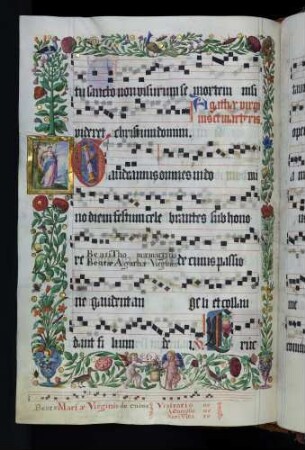 tu sancto non visurum se mortem nisi
Agathæ virg
videret christum dominum.
Gaudeamus omnes in do mi
no diem festum cele brantes sub hono
Beati Tho. martyris
re Beatæ Agathæ Virginis de cuius passio
ne gaudent an geli et collau
dant fi lium de i. Eruc
Beatæ Mariæ Virginis de cuius